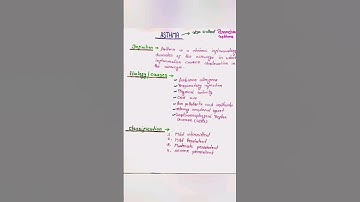 ASTHMA → also called Bronchial
Asthma
Definition → Asthma is a chronic inflammatory
disorder of the airways in which
inflammation causes obstruction in
the airways.
Etiology/causes
Airborne allergens
Respiratory infection
Physical activity
Cold air
Air pollutants and irritants
Strong emotional
Gastroesophageal Reflux
Disease (GERD)
Classification
1. Mild intermittent
2. Mild Persistent
3. Moderate persistent
4. severe persistent